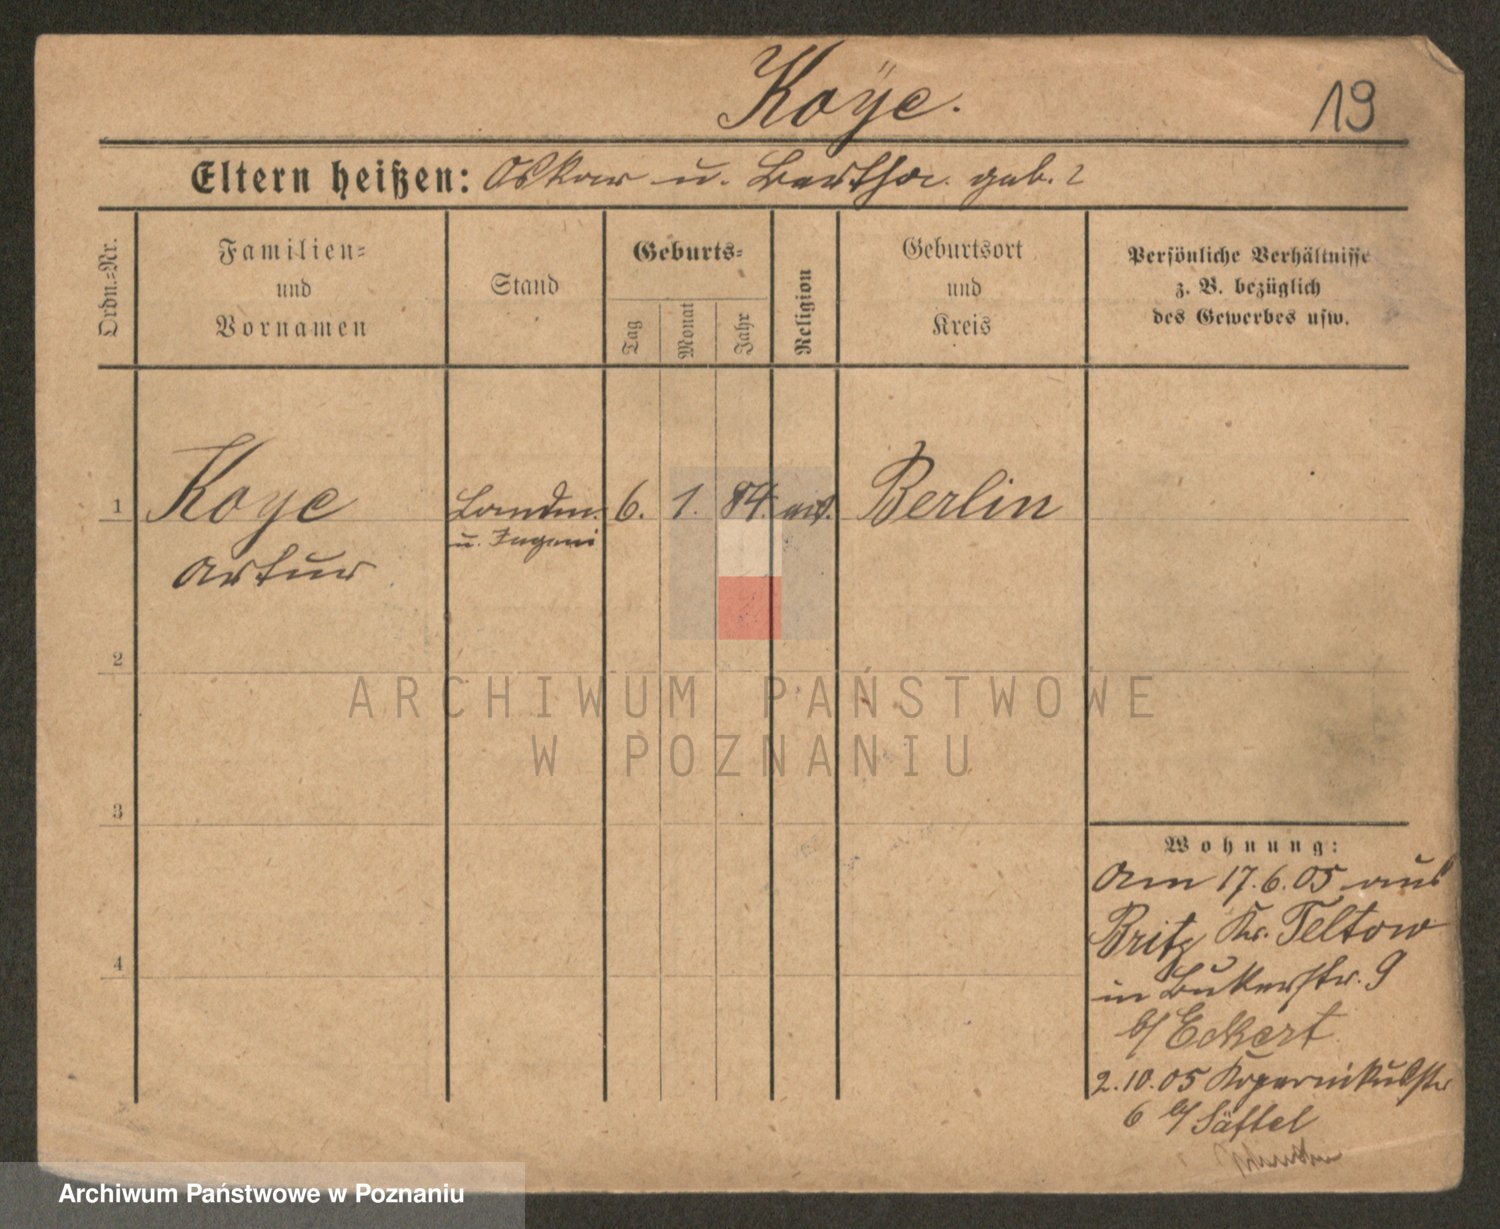 Koÿe.
19
Eltern heißen: Oskar u. Bertha geb. ?
Ordn.-Nr.
Familien-
und
Vornamen
Stand
Geburts-
Tag
Monat
Jahr
Religion
Geburtsort
und
Kreis
Persönliche Verhältnisse
z. B. bezüglich
des Gewerbes usw.
1
Koye
Artur
u.
6.
1.
84.
Berlin
2
3
4
ARCHIWUM PAŃSTWOWE
W POZNANIU
Wohnung:
Am 17.6.05 aus
Britz Kr. Teltow
in Bukerstr. 9
b/ Eckert
2.10.05 Kopernikusstr
6 b/ Säftel
Archiwum Państwowe w Poznaniu